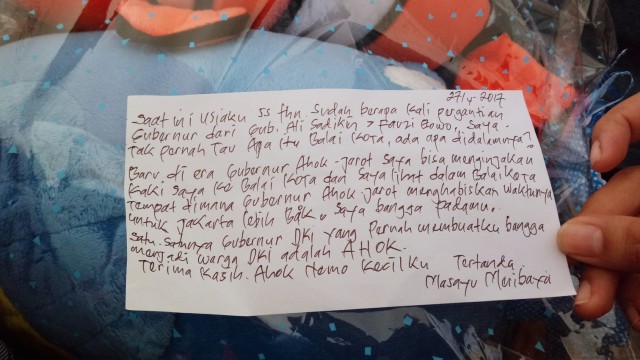 27/4-2017
Saat ini usiaku 55 thn. Sudah berapa kali pergantian
Gubernur dari Gub. Ali Sadikin > Fauzi Bowo, saya
tak pernah Tau Apa itu Balai Kota, ada apa didalamnya?
Baru di era Gubernur Ahok-jarot saya bisa menginjakan
kaki saya ke Balai Kota dan saya lihat dalam Balai Kota
tempat dimana Gubernur Ahok-jarot menghabiskan waktunya
untuk jakarta lebih Baik. Saya bangga padamu.
Satu-satunya Gubernur DKI yang pernah membuatku bangga
menjadi warga DKI adalah AHOK.
Terima kasih. Ahok Nemo kecilku
Tertanda
Masayu